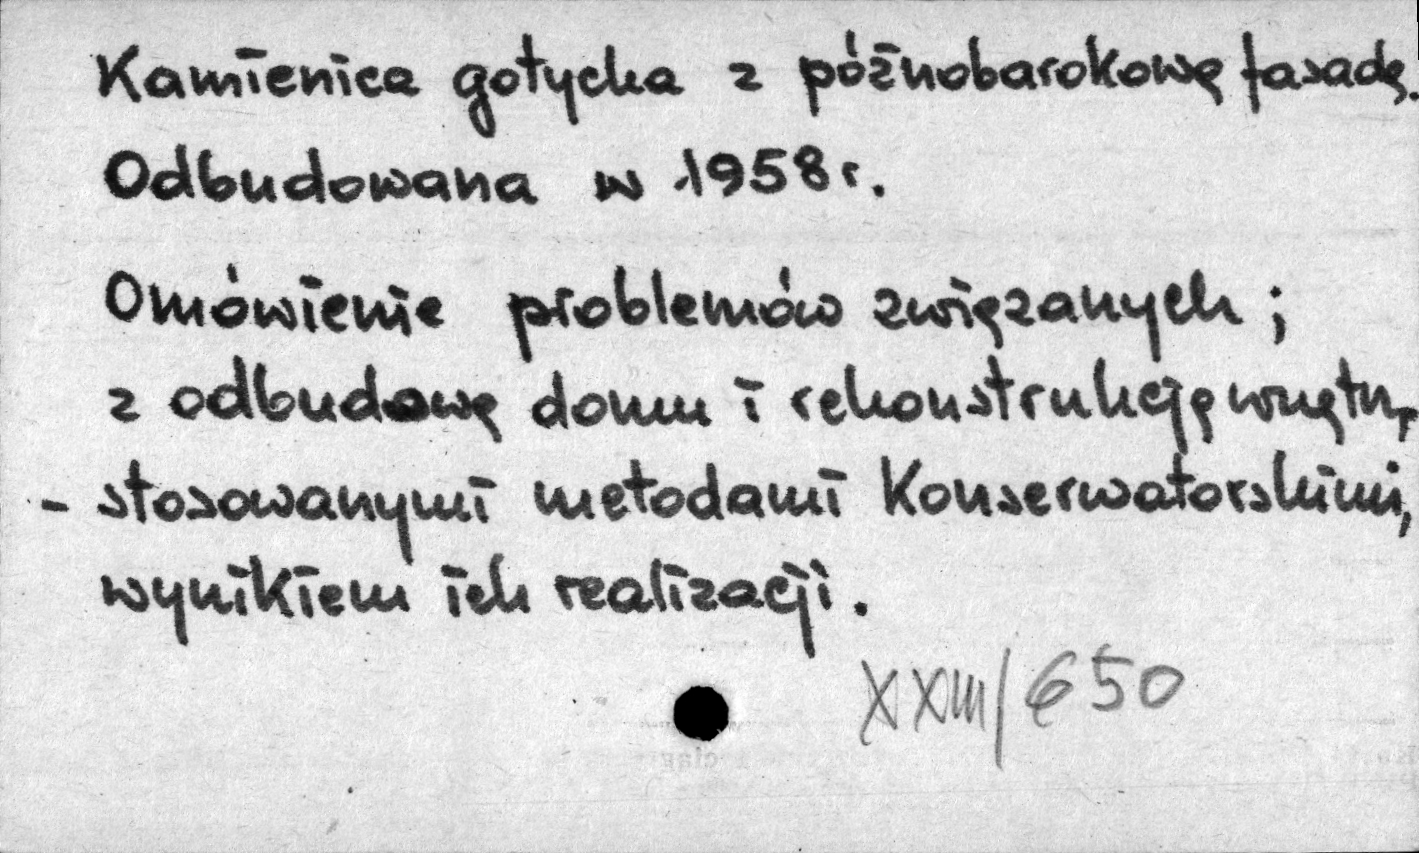 Kamienica gotycka z późnobarokową fasadą.
Odbudowana w 1958 r.
Omówienie problemów związanych ;
z odbudową domu i rekonstrukcją wnętrz,
- stosowanymi metodami konserwatorskimi,
wynikiem ich realizacji.
XXIII/650